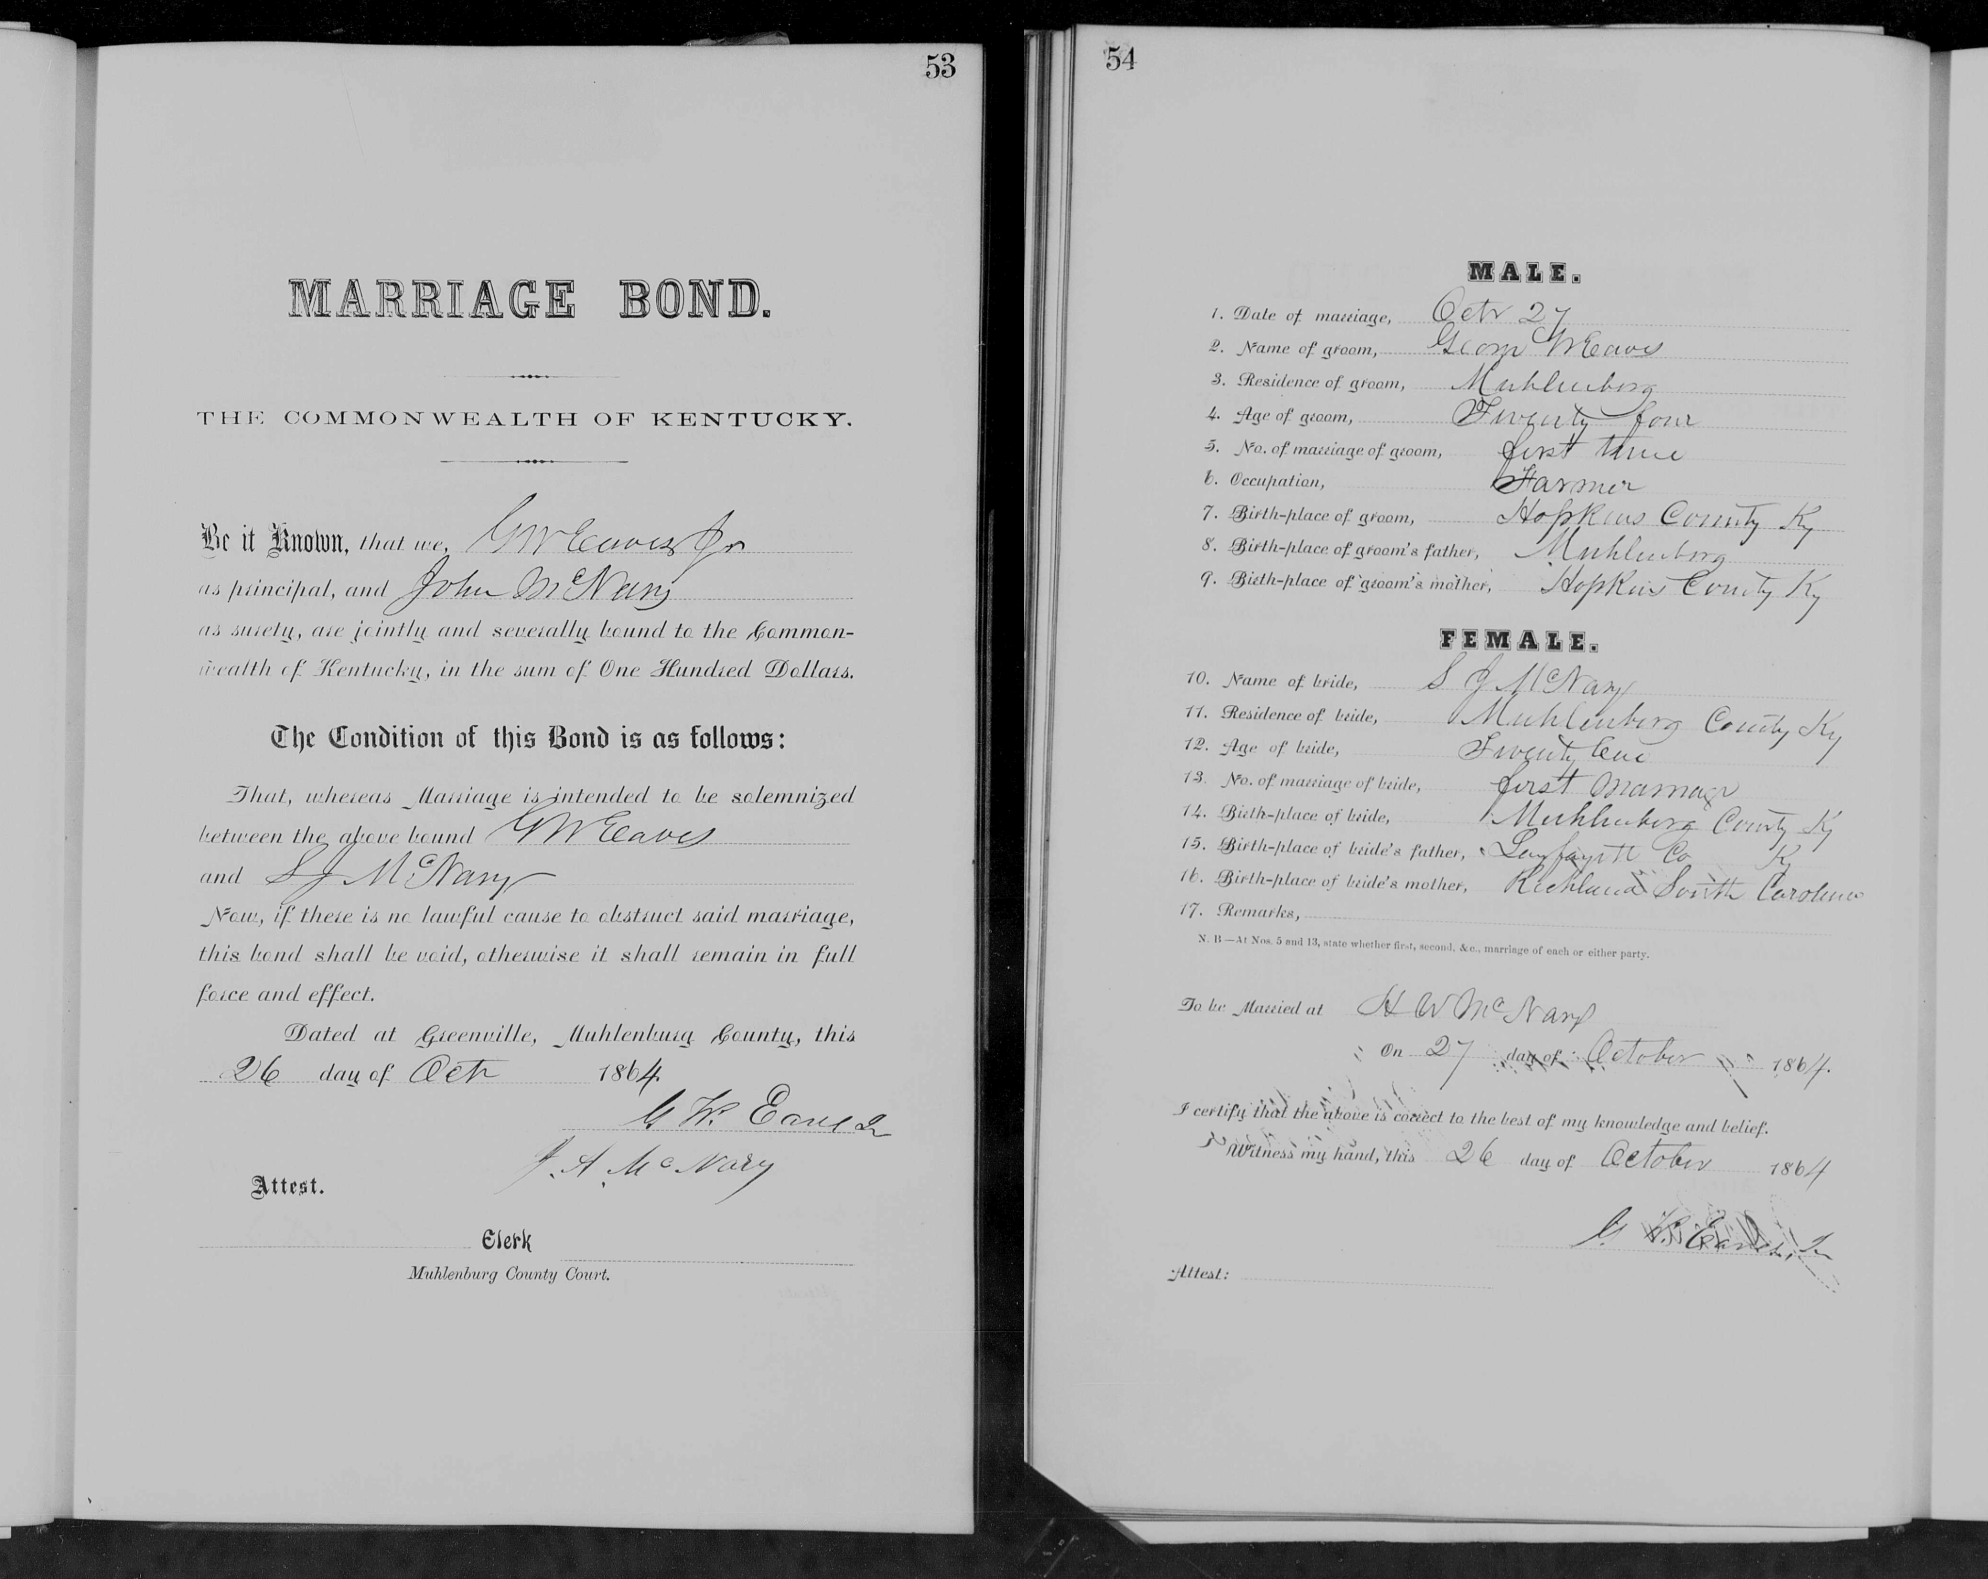 53
MARRIAGE BOND.
THE COMMONWEALTH OF KENTUCKY.
Be it Known, that we, G W Eaves Jr
as principal, and John McNary
as surety, are jointly and severally bound to the Common-
wealth of Kentucky, in the sum of One Hundred Dollars.
The Condition of this Bond is as follows:
That, whereas Marriage is intended to be solemnized
between the above bound G W Eaves
and S J McNary
Now, if there is no lawful cause to obstruct said marriage,
this bond shall be void, otherwise it shall remain in full
force and effect.
Dated at Greenville, Muhlenburg County, this
26 day of Octr 1864.
G W. Eaves Jr
J. A. McNary
Attest.
Clerk
Muhlenburg County Court.
54
MALE.
1. Date of marriage, Octr 27
2. Name of groom, George W Eaves
3. Residence of groom, Muhlenberg
4. Age of groom, Twenty four
5. No. of marriage of groom, first time
6. Occupation, Farmer
7. Birth-place of groom, Hopkins County Ky
8. Birth-place of groom's father, Muhlenberg
9. Birth-place of groom's mother, Hopkins County Ky
FEMALE.
10. Name of bride, S J McNary
11. Residence of bride, Muhlenberg County Ky
12. Age of bride, Twenty One
13. No. of marriage of bride, first marriage
14. Birth-place of bride, Muhlenberg County Ky
15. Birth-place of bride's father, Layfayett Co Ky
16. Birth-place of bride's mother, Richland South Carolina
17. Remarks,
N. B—At Nos. 5 and 13, state whether first, second, &c., marriage of each or either party.
To be Married at H W McNary
On 27 day of October 1864.
I certify that the above is correct to the best of my knowledge and belief.
Witness my hand, this 26 day of October 1864
G W. Eaves, Jr
Attest: